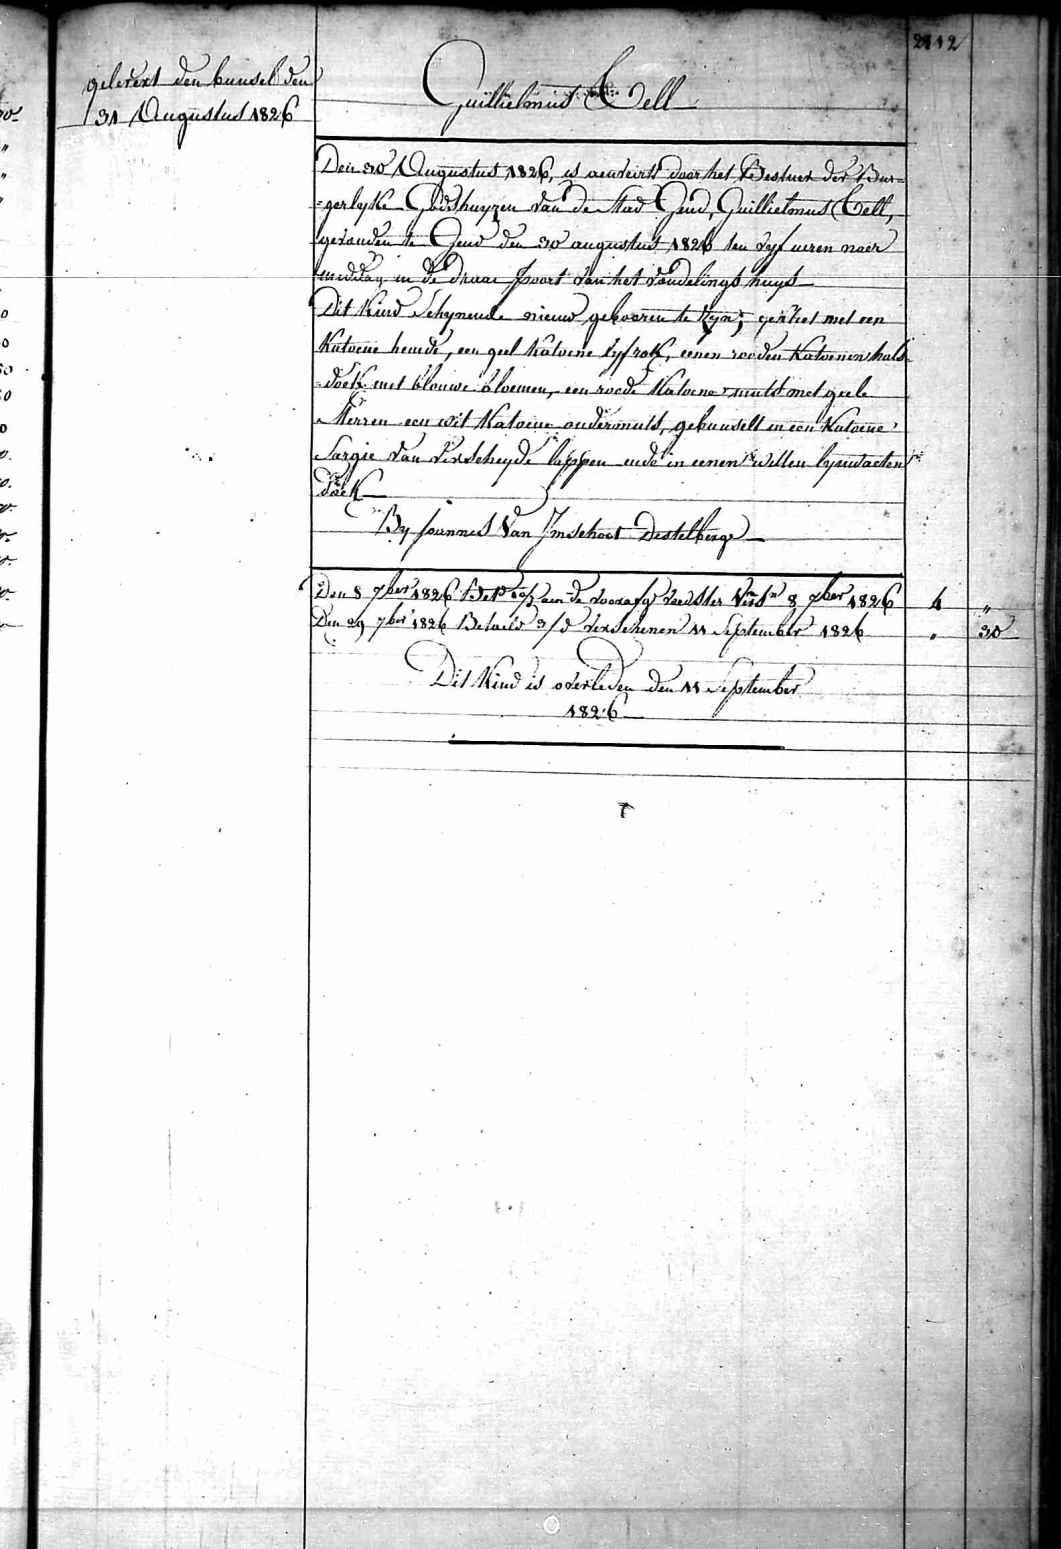 2112
gelevert den bunsel den
31 Augustus 1826
Guillielmus Tell
Den 30 Augustus 1826, is aenveirt door het Bestuer der Bur=
=gerlyke Godshuyzen van de Stad Gend, Guillielmus Tell,
gevonden te Gend den 30 augustus 1826 ten vyf ueren naer
middag in de draae poort van het vondelings huys
Dit Kind Schynende nieuw gebooren te zyn; gekleet met een
Katoene hemde, een geel Katoene lyfrok, eenen rooden Katoenen hals=
=doek met blouwe bloemen, een roode Katoene muts met geele
sterren een wit Katoene ondermuts, gebunselt in een Katoene
Sargie van verscheyde lappen ende in eenen wellen lynwaeten
doek
By Joannes Van Imschoot Destelberge
Den 8 7ber 1826 aen de voorafg voedster 8 7ber 1826 4 "
Den 29 7ber 1826 Betaeld 3/d verschenen 11 September 1826 " 30
Dit Kind is overleden den 11 September
1826